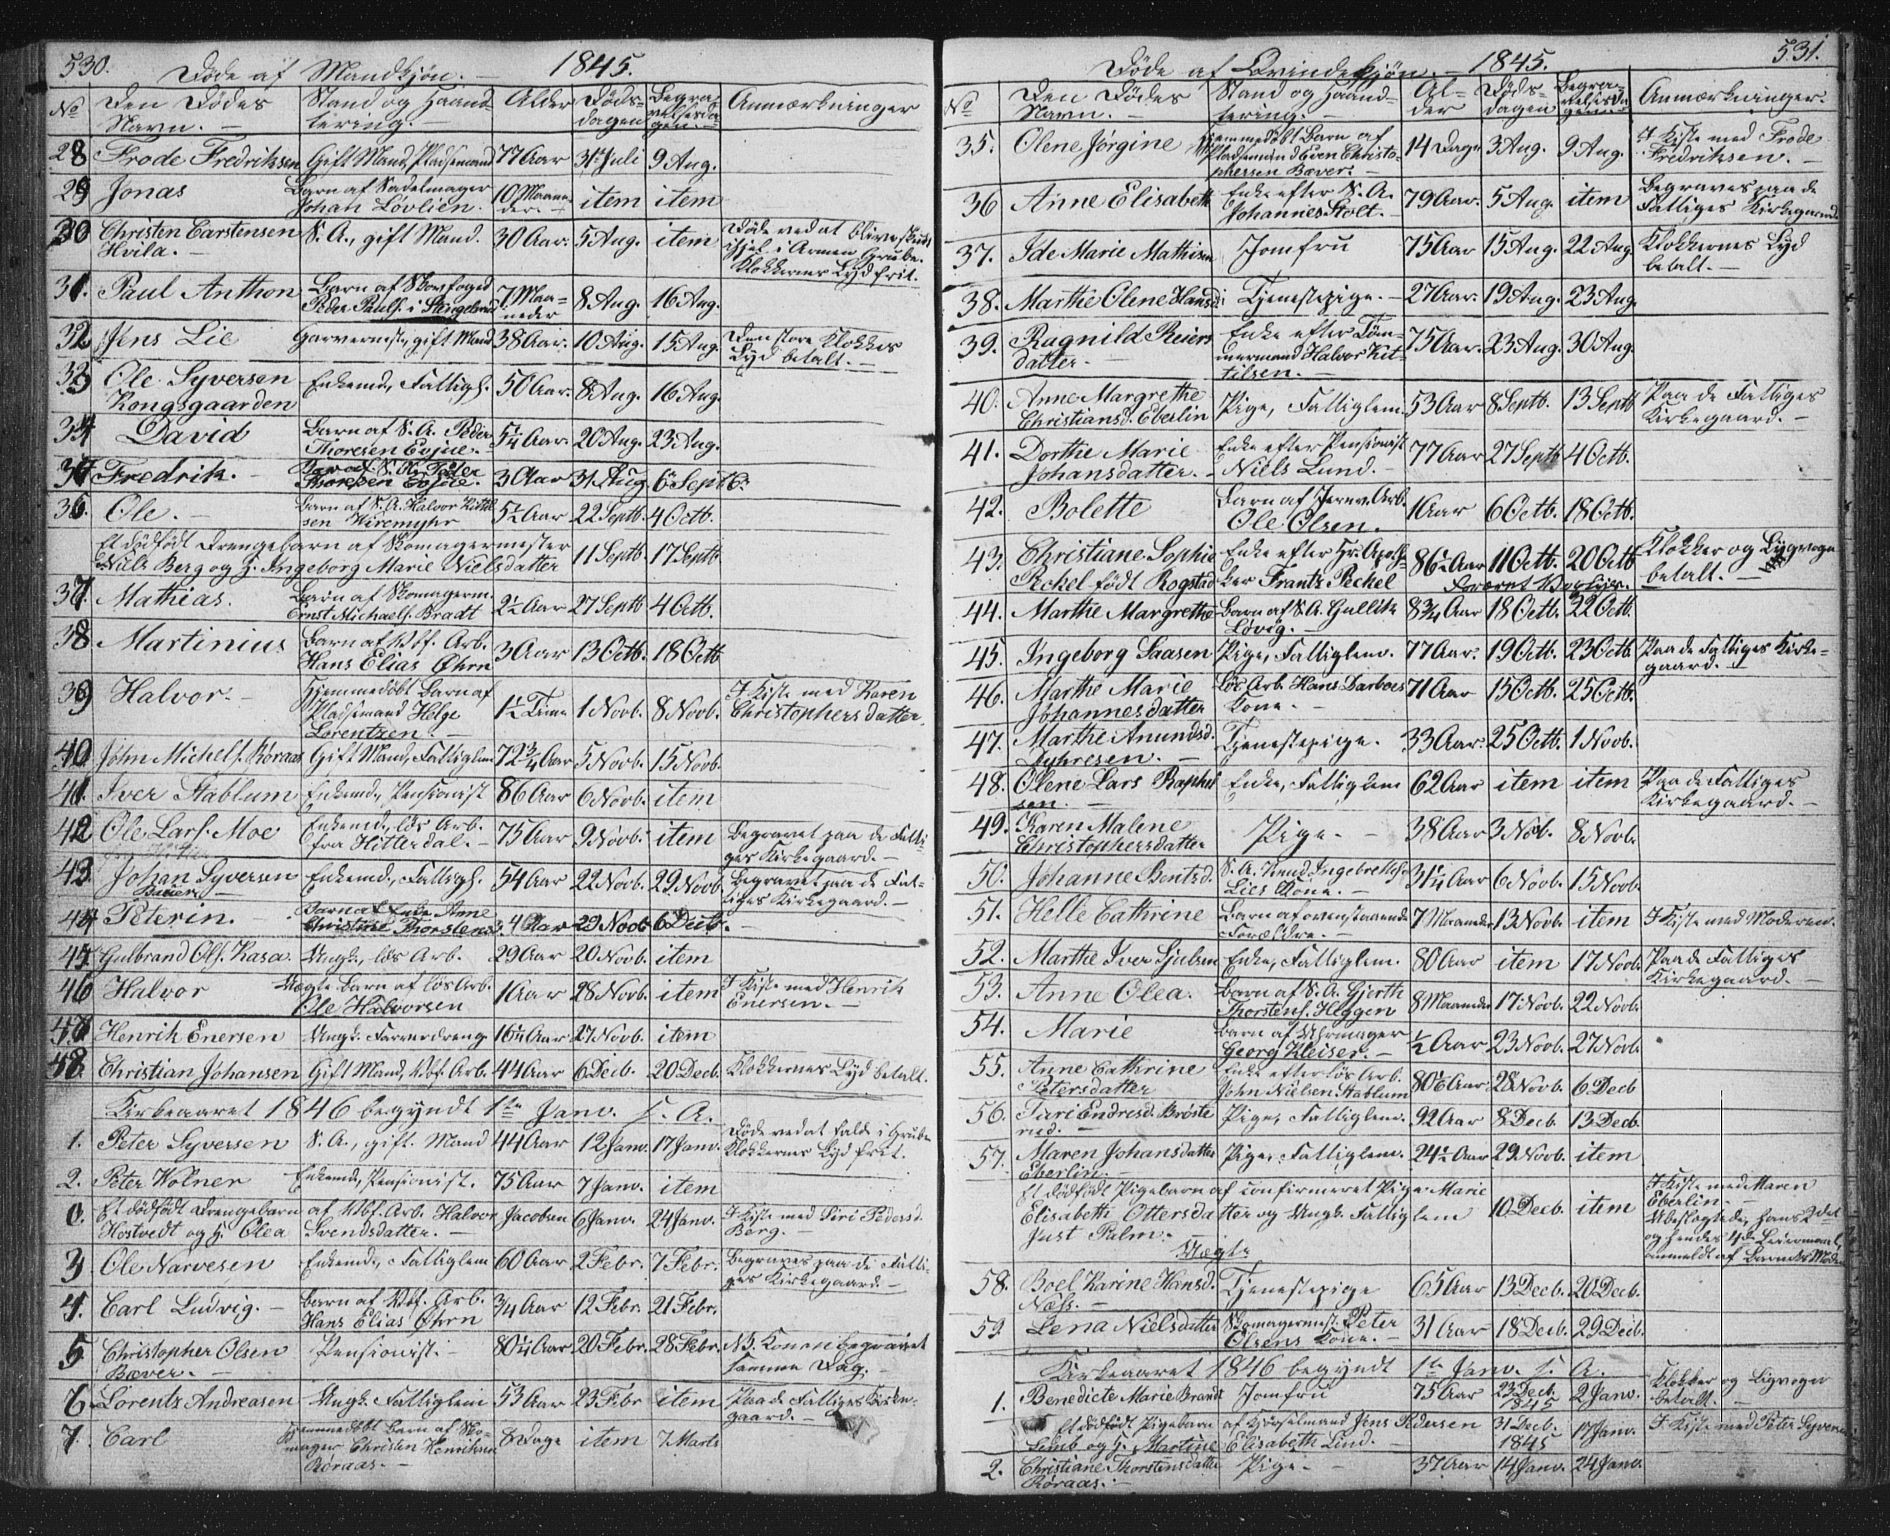 530. Døde af Mandkjøn. – 1845.
No Den Dødes Navn. – Stand og Haandtering. – Alder Dødsdagen Begravelsesdagen. – Anmærkninger
28 Frode Fredriksen Gift Mand, Pladsemand 77 Aar 31te Juli 9 Aug.
29 Jonas Barn af Sadelmager 10 Maaneder. – item item
Johan Lövlien. –
30 Christen Carstensen S. A., gift Mand. 30 Aar. 5 Aug. item Døde ved at blive skudt
Hvila. – ihjel i Armen Grube.
Klokkernes Lyd frit.
31. Paul Anthon Barn af Skovfoged 7 Maaneder 8 Aug. 16 Aug.
Peder Pauls. i Stengelrud
32 Jens Lie Garvermest., gift Mand 38 Aar. 10 Aug. 15 Aug. Den store Klokkes
Lyd betalt. –
33 Ole Syversen Enkemd., Fattigl. 50 Aar. 8 Aug. 16 Aug.
Kongsgaarden
34 David Barn af S. A. Peder 5¼ Aar. 20 Aug. 23 Aug.
Thoresen Evjue. –
35 Fredrik. – Barn af S. A. Peder 3 Aar 31 Aug. 6 Septb.
Thoresen Evjue. –
36. Ole. – Barn af S. A. Halvor Kittil- 5½ Aar 22 Septb. 4 Octb.
sen Hiremyhr
Et dödfödt Drengebarn af Skomagermester 11 Septb. 17 Septb.
Niels Berg og H. Ingeborg Marie Nielsdatter
37. Mathias. Barn af Skomagerm. 2½ Aar 27 Septb 4 Octb.
Ernst Michaels. Bradt
38 Martinius Barn af Vbf. Arb. 3 Aar 13 Octb. 18 Octb
Hans Elias Öhrn
39 Halvor. – Hjemmedöbt Barn af 1½ Time 1 Novb. 8 Novb. I Kiste med Karen
Pladsemand Helge Christophersdatter.
Lorentzen –
40. John Michels. Röraas Gift Mand, Fattiglem 72¾ Aar 5 Novb. 15 Novb.
41. Iver Stablum Enkemd., Pensionist 86 Aar 6 Novb. item
42 Ole Lars. Moe Enkemd., lös Arb. 75 Aar 9 Novb. item Begravet paa de Fatti-
fra Hitterdal. – ges Kirkegaard. –
43. Johan Syversen Enkemd., Fattigl. 54 Aar 22 Novb. 29 Novb Begravet paa de Fat-
tiges Kirkegaard. –
44 Peterin. – Barn af Enke Anne 4 Aar 29 Novb 6 Decb. –
Christine Thorstensd.
45. Gulbrand Ols. Kasa Ungk., lös Arb. 29 Aar 20 Novb. item
46 Halvor Uægte Barn af lös Arb. 1 Aar 28 Novb. item I Kiste med Henrik
Ole Halvorsen Enersen. –
47 Henrik Enersen Ungk. Farverdreng 16¼ Aar 27 Novb. item
48. Christian Johansen Gift Mand, Vbf. Arb. 44 Aar 6 Decb. 20 Decb. Klokkernes Lyd betalt.
Kirkeaaret 1846 begyndt 1te Janv. s. A.
1. Peter Syversen S. A., gift Mand 44 Aar 12 Janv. 17 Janv. Døde ved at falde i Gruben
Klokkernes Lyd frit.
2. Peter Wolner Enkemd., Pensionist. 75 Aar 7 Janv. item
0. Et dödfödt Drengebarn af Vbf. Arb. Halvor Jacobsen 6 Janv. 24 Janv. I Kiste med Siri Pedersd.
Hostvedt og H. Olea Svendsdatter. – Berg. –
3 Ole Narvesen Enkemd., Fattiglem 60 Aar 2 Febr. 7 Febr. Begraves paa de Fatti-
ges Kirkegaard. –
4. Carl Ludvig. – Barn af Vbf. Arb. ¾ Aar 12 Febr. 21 Febr.
Hans Elias Öhrn
5 Christopher Olsen Pensionist. – 80¼ Aar 20 Febr. 28 Febr. NB. Konen begravet
Bæver. – samme Dag. –
6 Lorentz Andreasen Ungk. Fattiglem 53 Aar 23 Febr item Paa de Fattiges Kirke-
gaard. –
7. Carl Hjemmedöbt Barn af Sko- 8 Dage item 7 Marts
mager Christen Henriksen
Röraas. –
Døde af Qvindekjøn. – 1845. 531.
No Den Dødes Navn. – Stand og Haandtering. – Alder Dødsdagen Begravelsesdagen. Anmærkninger.
35. Olene Jörgine Hjemmedöbt Barn af 14 Dage 3 Aug. 9 Aug. I Kiste med Frode
Pladsemand Even Christo- Fredriksen. –
phersen Bæver. –
36 Anne Elisabeth Enke efter S. A. 79 Aar. 5 Aug. item Begraves paa de
Johannes Stolt. – Fattiges Kirkegaard
37. Ide Marie Mathisen Jomfru 75 Aar 15 Aug. 22 Aug. Klokkernes Lyd
betalt. –
38. Marthe Olene Hansd. Tjenestepige. – 27 Aar. 19 Aug. 23 Aug.
39. Ragnild Reiers- Enke efter Töm- 75 Aar. 23 Aug. 30 Aug.
datter. – mermand Halvor Kit-
tilsen. –
40. Anne Margrethe Pige, Fattiglem. 53 Aar 8 Septb. 13 Septb Paa de Fattiges
Christiansd. Eberlin Kirkegaard. –
41. Dorthe Marie Enke efter Pensionist 77 Aar 27 Septb 4 Octb.
Johansdatter. – Niels Lund. –
42. Bolette Barn af Jernv. Arb. 1 Aar 6 Octb. 18 Octb.
Ole Olsen.
43. Christiane Sophie Enke efter Hr. Apoth- 86½ Aar 11 Octb. 20 Octb Klokker og Ligvogn
Peckel födt Rogstad eker Frantz Peckel betalt. –
44. Marthe Margrethe Barn af S. A. Gullik 8¾ Aar 18 Octb. 22 Octb.
Lövig. –
45. Ingeborg Saasen Pige, Fattiglem. 77 Aar. 19 Octb. 23 Octb. Paa de Fattiges Kirke-
gaard. –
46. Marthe Marie Lös Arb. Hans Darboes 71 Aar 15 Octb. 25 Octb.
Johannesdatter Kone. –
47. Marthe Amundsd. Tjenestepige. 33 Aar. 25 Octb. 1 Novb.
Myhresen. –
48. Olene Lars Enke, Fattiglem 62 Aar item item Paa de Fattiges
Kirkegaard. –
49. Karen Malene Pige. – 38 Aar 3 Novb. 8 Novb.
Christophersdatter
50. Johanne Bentsd. S. A. Knud Ingebrethsen 31¼ Aar 6 Novb. 15 Novb.
Lies Kone. –
51. Helle Cathrine Barn af ovenstaaende 7 Maaneder 13 Novb. item I Kiste med Moderen.
Forældre. –
52. Marthe Iver Enke, Fattiglem. 80 Aar item 17 Novb. Paa de Fattiges
Kirkegaard. –
53. Anne Olea. Barn af S. A. Gjerth 8 Maaneder 17 Novb. 22 Novb.
Thorstens. Heggen
54. Marie Barn af Uhrmager ½ Aar 23 Novb. 27 Novb.
Georg Kleiser. –
55. Anne Cathrine Enke efter lös Arb. 80 Aar 28 Novb. 6 Decb
Petersdatter John Nielsen Stablum
56. Tari Endresd. Bröste- Pige, Fattiglem. 92 Aar 8 Decb. 13 Decb.
rud. –
57. Maren Johansdatter Pige, Fattiglem. 24½ Aar 29 Novb. item
Eberlin. –
Et dödfödt Pigebarn af confirmeret Pige Marie 10 Decb. item I Kiste med Maren
Elisabeth Ottersdatter og Ungk. Fattiglem Eberlin. –
Just Palm. – Ubeslægtede, hans 2det
Uægte og hendes 4de Leiermaal,
anmeldt af Barnets Moder
58. Boel Karine Hansd. Tjenestepige 65 Aar 13 Decb. 20 Decb.
Næss. –
59. Lena Nielsdatter Skomagermest. Peter 31 Aar 18 Decb. 29 Decb.
Olsens Kone. –
Kirkeaaret 1846 begyndt 1te Janv. s. A.
1. Benedicte Marie Brandt Jomfru 75 Aar 23 Decb. 1845 2 Janv. Klokker og Ligvogn
betalt. –
Et dödfödt Pigebarn af Hörselmand Jens Pedersen 31 Decb. 1845 17 Janv. I Kiste med Peter Syversen
Lemb og H. Martine Elisabeth Lind. –
2. Christiane Thorstensdatter Pige. – 37 Aar 14 Janv. 24 Janv.
Röraas. –